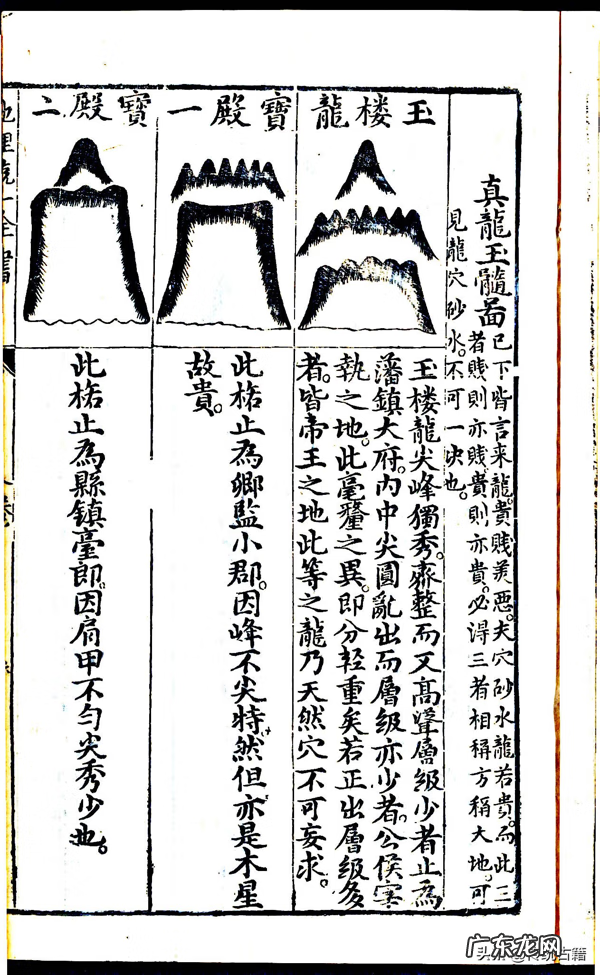 真龍玉髓啚
已下皆言来龍。貴賤美惡。夫穴砂水龍若貴。而此三
者賤則亦賤。貴則亦貴。必淂三者相稱方稱大地。可
見龍穴砂水。不可一缺也。
玉楼龍
玉楼龍尖峰獨秀。齊整而又高聳層級少者止為
藩鎮大府。内中尖圓亂出而層級亦少者。公侯宰
執之地。此毫釐之異。即分輕重矣若正出層級多
者。皆帝王之地此等之龍乃天然穴不可妄求。
寶殿一
此格止為鄉監小郡。因峰不尖特然但亦是木星
故貴。
寶殿二
此格止為縣鎮臺郎。因肩甲不勻尖秀少也。
地理統一全書
广东龙网